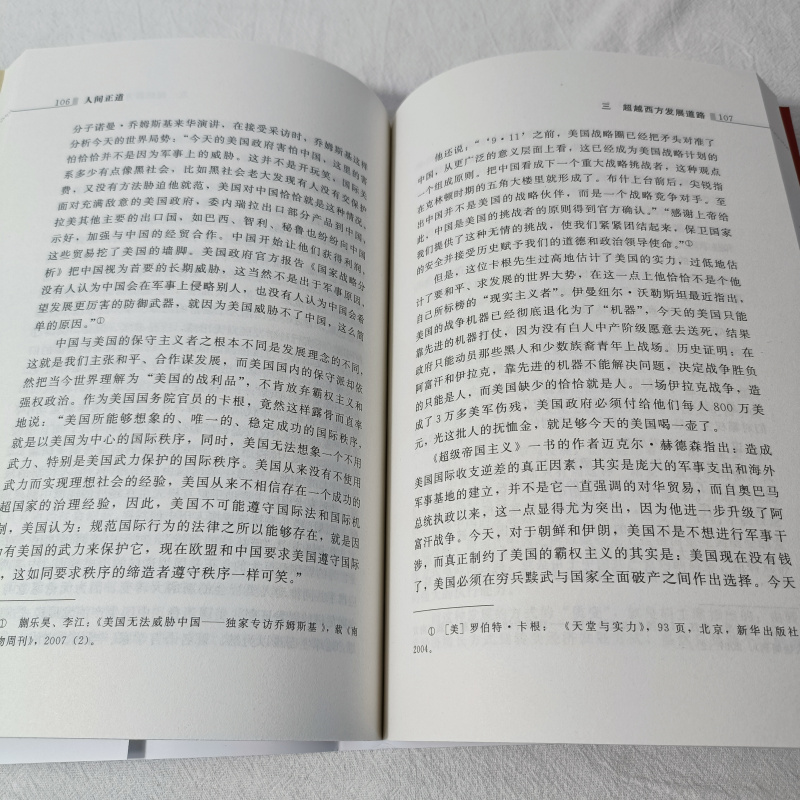 106 人间正道
分子诺曼·乔姆斯基来华演讲，在接受采访时，乔姆斯基这样
分析今天的世界局势：“今天的美国政府害怕中国，这里的害
怕恰恰并不是因为军事上的威胁。这并不是开玩笑，国际关
系多少有点像黑社会，比如黑社会老大发现有人没有交保护
费，又没有方法胁迫他就范，美国对中国恰恰就是这种情况。
面对充满敌意的美国政府，委内瑞拉出口部分产品到中国，
拉美其他主要的出口国，如巴西、智利、秘鲁也纷纷向中国
示好，加强与中国的经贸合作。中国开始让他们获得利润，
这些贸易挖了美国的墙脚。美国政府官方报告《国家战略分
析》把中国视为首要的长期威胁，这当然不是出于军事原因，
没有人认为中国会在军事上侵略别人，也没有人认为中国会看
望发展更厉害的防御武器，就因为美国威胁不了中国，这么简
单的原因。”①
中国与美国的保守主义者之根本不同是发展理念的不同，
这就是我们主张和平、合作谋发展，而美国国内的保守派却依
然把当今世界理解为“美国的战利品”，不肯放弃霸权主义和
强权政治。作为美国国务院官员的卡根，竟然这样露骨而直率
地说：“美国所能够想象的、唯一的、稳定成功的国际秩序，
就是以美国为中心的国际秩序，同时，美国无法想象一个不用
武力、特别是美国武力保护的国际秩序。美国从来没有不使用
武力而实现理想社会的经验，美国从来不相信存在一个成功的
超国家的治理经验，因此，美国不可能遵守国际法和国际机
制，美国认为：规范国际行为的法律之所以能够存在，就是因
为有美国的武力来保护它，现在欧盟和中国要求美国遵守国际
，这如同要求秩序的缔造者遵守秩序一样可笑。”
① 蒯乐昊、李江：《美国无法威胁中国——独家专访乔姆斯基》，载《南
物周刊》，2007（2）。
三 超越西方发展道路 107
他还说：“‘9·11’之前，美国战略圈已经把矛头对准了
中国，从更广泛的意义层面上看，这已经成为美国战略计划的
一个组成原则，把中国看成下一个重大战略挑战者，这种观点
在克林顿时期的五角大楼里就形成了。布什上台前后，尖锐指
出中国并不是美国的战略伙伴，而是一个战略竞争对手。至
此，中国是美国的挑战者的原则得到官方确认。”“感谢上帝给
我们提供了这种无情的挑战，使我们紧紧团结起来，保卫国家
的安全并接受历史赋予我们的道德和政治领导使命。”①
但是，这位卡根先生过高地估计了美国的实力，过低地估
计了要和平、求发展的世界大势，在这一点上他恰恰不是个他
自己所标榜的“现实主义者”。伊曼纽尔·沃勒斯坦最近指出，
美国的战争机器已经彻底退化为了“机器”，今天的美国只能
靠先进的机器打仗，因为没有白人中产阶级愿意去送死，结果
政府只能动员那些黑人和少数族裔青年上战场。历史证明：在
阿富汗和伊拉克，靠先进的机器不能解决问题，决定战争胜负
的只能是人，而美国缺少的恰恰就是人。一场伊拉克战争，造
成了3万多美军伤残，美国政府必须付给他们每人800万美
元，光这批人的抚恤金，就足够今天的美国喝一壶了。
《超级帝国主义》一书的作者迈克尔·赫德森指出：造成
美国国际收支逆差的真正因素，其实是庞大的军事支出和海外
军事基地的建立，并不是它一直强调的对华贸易，而自奥巴马
总统执政以来，这一点显得尤为突出，因为他进一步升级了阿
富汗战争。今天，对于朝鲜和伊朗，美国不是不想进行军事干
涉，而真正制约了美国的霸权主义的其实是：美国现在没有钱
了，美国必须在穷兵黩武与国家全面破产之间作出选择。今天
① [美]罗伯特·卡根：《天堂与实力》，93页，北京，新华出版社
2004。